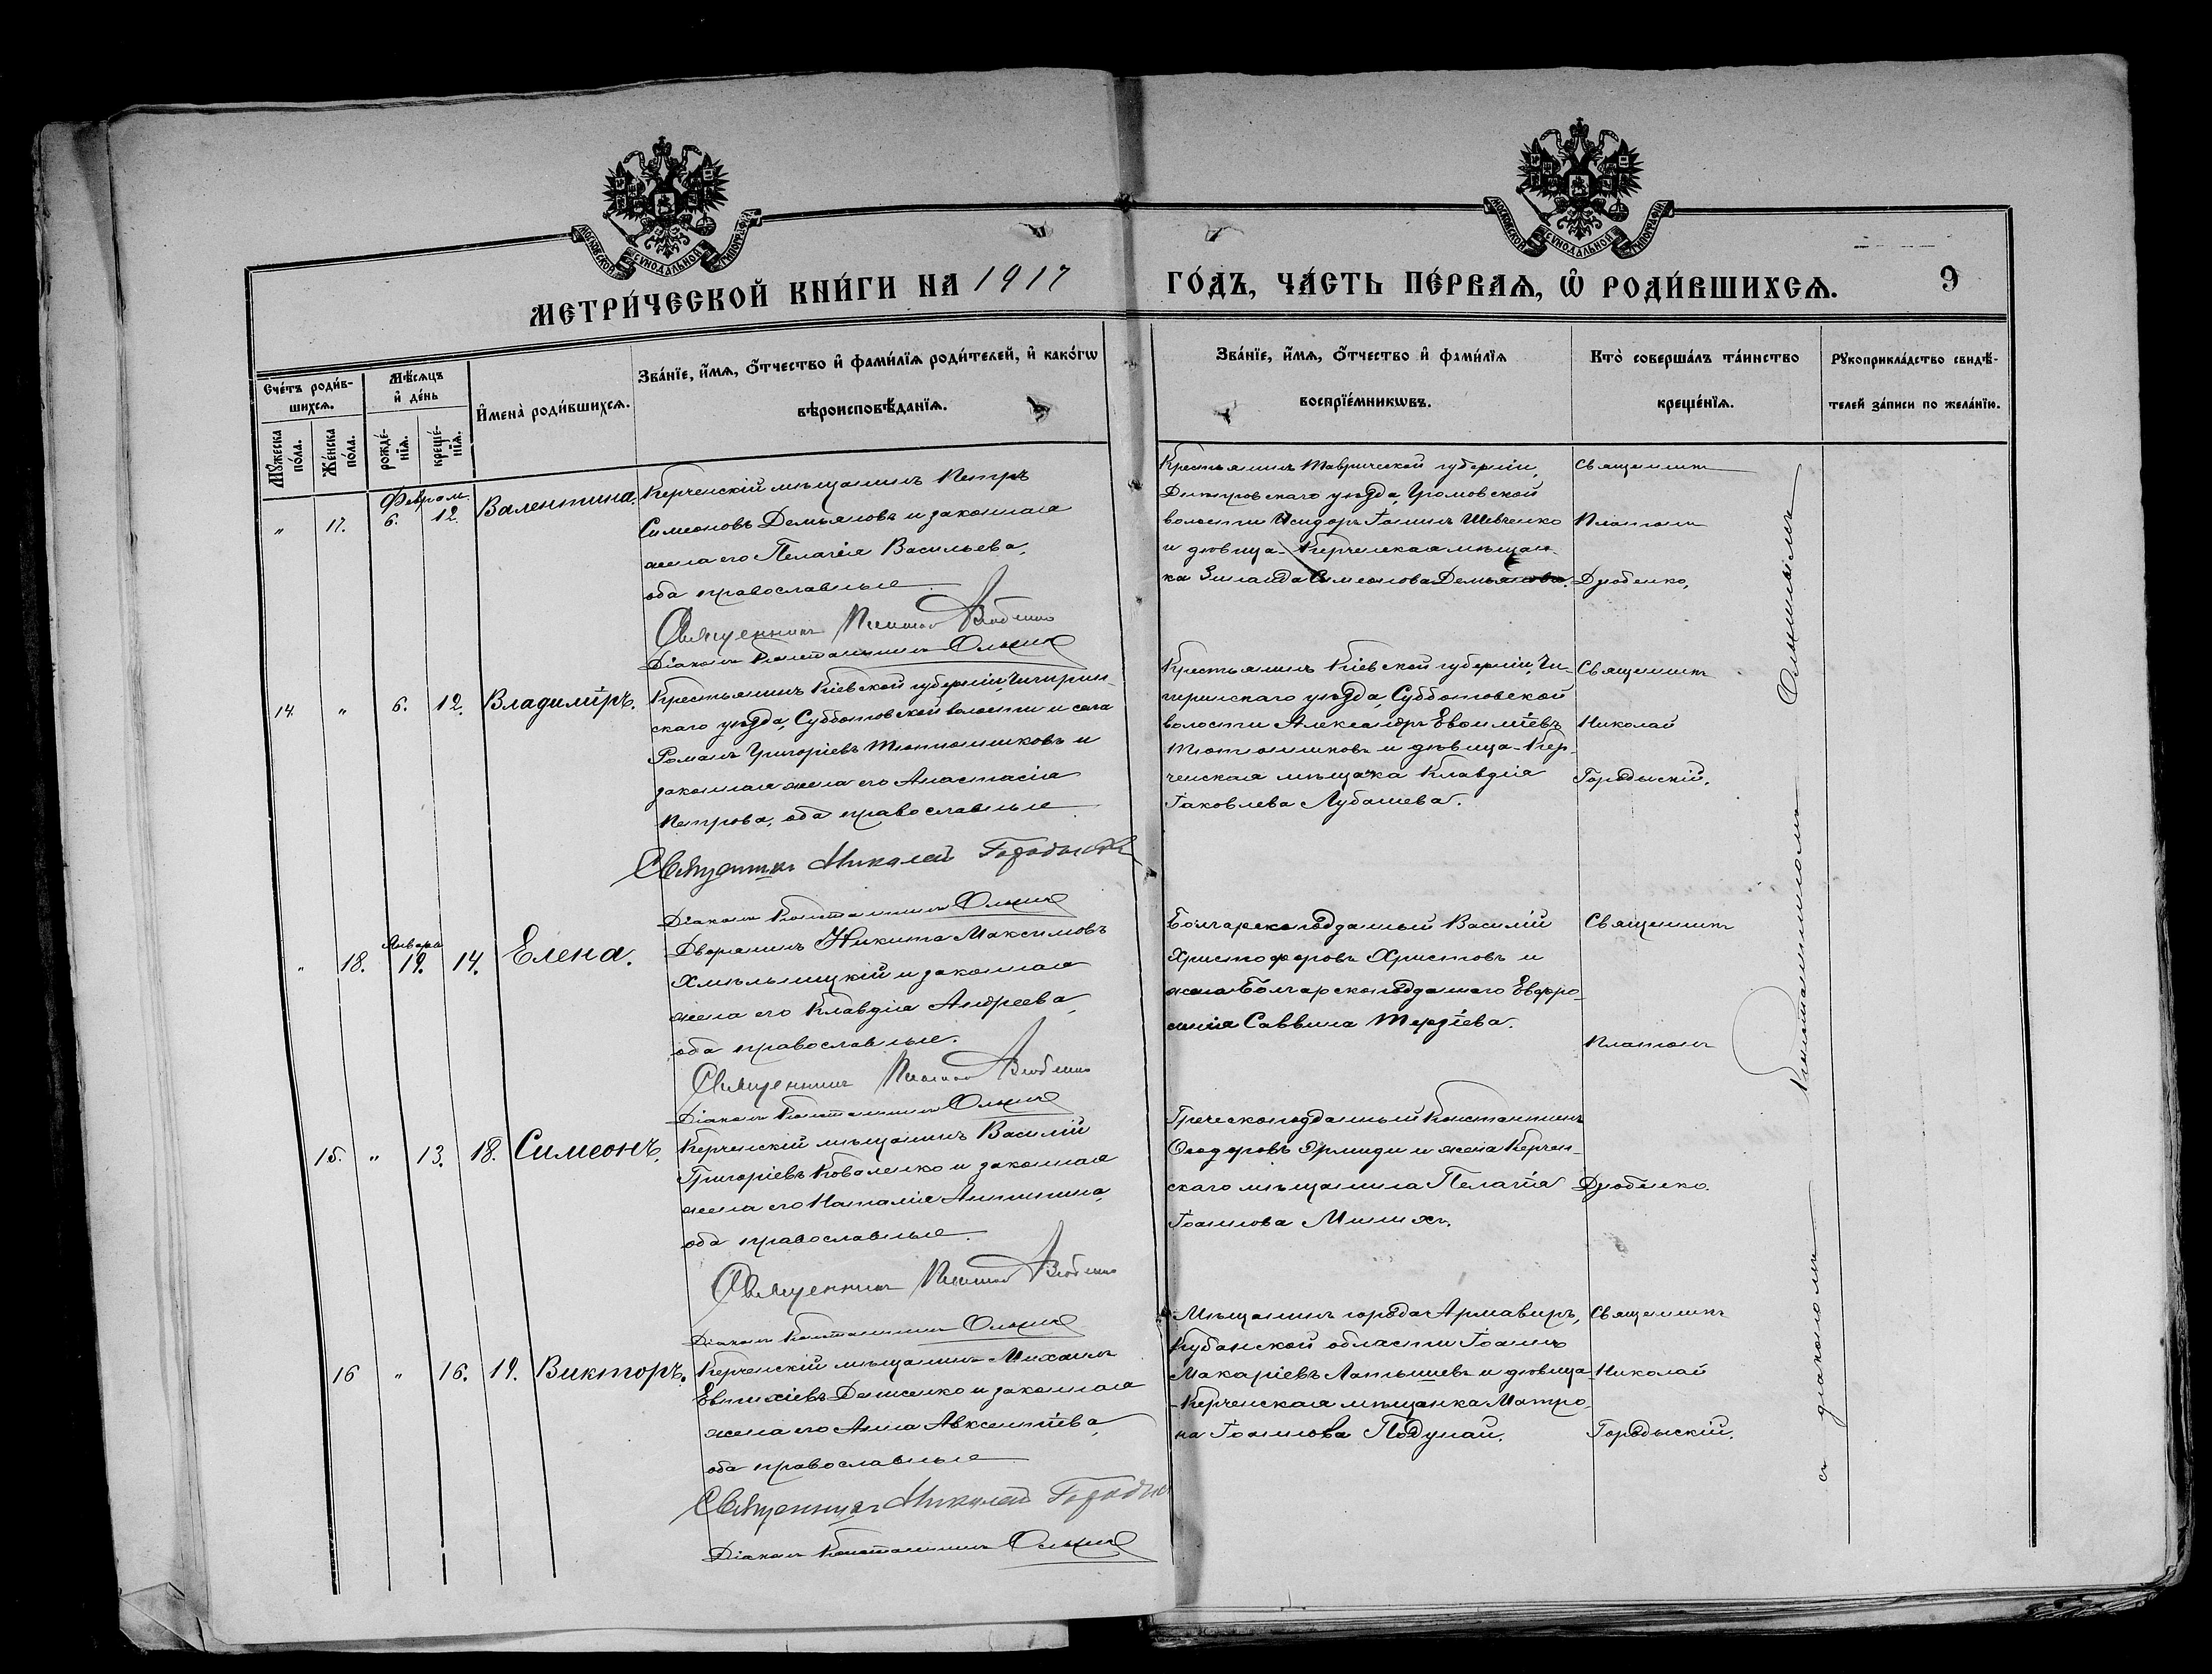 МОСКОВСКОЙ СѴНОДАЛЬНОЙ ТИПОГРАФІИ
МОСКОВСКОЙ СѴНОДАЛЬНОЙ ТИПОГРАФІИ
МЕТРИ́ЧЕСКОЙ КНИ́ГИ НА 1917
ГО́ДЪ, ЧА́СТЬ ПЕ́РВАѦ, Ѡ҆ РОДИ́ВШИХСѦ.
9
Сче́тъ роди́в-
шихсѧ.
Мꙋ́жеска по́ла.
Же́нска по́ла.
Мѣ́сѧцъ и҆ де́нь
рожде́нїѧ.
креще́нїѧ.
И҆мена̀ роди́вшихсѧ.
Зва́нїе, и҆́мѧ, ѻ҆́тчество и҆ фами́лїѧ роди́телей, и҆ како́гѡ
вѣроисповѣ́данїѧ.
Зва́нїе, и҆́мѧ, ѻ҆́тчество и҆ фами́лїѧ
воспрїе́мникѡвъ.
Кто̀ соверша́лъ та́инство
креще́нїѧ.
Рꙋкоприкла́дство свидѣ́-
телей за́писи по жела́нїю.
" 17. Феврал. 6. 12. Валентина.
Керченскій мѣщанинъ Петръ
Симеоновъ Демьяновъ и законная
жена его Пелагія Васильева,
оба православные
Священникъ Платонъ Дзюбенко
Діаконъ Константинъ
Крестьянинъ Таврической губерніи,
Днѣпровскаго уѣзда, Громовской
волости Исидоръ Іоаннъ Шевченко
и дѣвица Керченская мѣщан-
ка Зинаида Симеонова Демьянова.
Священникъ
Платонъ
Дзюбенко,
14. " 6. 12. Владиміръ.
Крестьянинъ Кіевской губерніи, Чигирин-
скаго уѣзда, Субботовской волости и села
Романъ Григоріевъ Тютюнниковъ и
законная жена его Анастасія
Петрова, оба православные
Священникъ Николай Городыскій
Діаконъ Константинъ
Крестьянинъ Кіевской губерніи, Чи-
гиринскаго уѣзда, Субботовской
волости Александръ Евфиміевъ
Тютюнниковъ и дѣвица Кер-
ченская мѣщанка Клавдія
Іаковлева Лубашева.
Священникъ
Николай
Городыскій.
" 18. Января 19. 14. Елена.
Дворянинъ Никита Максимовъ
Хмѣльницкій и законная
жена его Клавдія Андреева,
оба православные.
Священникъ Платонъ Дзюбенко
Діаконъ Константинъ
Болгарскоподданный Василій
Христофоровъ Христовъ и
жена Болгарскоподданнаго Евфро-
синія Саввина Терзіева.
Священникъ
Платонъ
15. " 13. 18. Симеонъ.
Керченскій мѣщанинъ Василій
Григоріевъ Коваленко и законная
жена его Наталія Антипина,
оба православные.
Священникъ Платонъ Дзюбенко
Діаконъ Константинъ
Греческоподданный Константинъ
Ѳеодоровъ Эрмиди и жена Керчен-
скаго мѣщанина Пелагія
Іоаннова Миних.
Дзюбенко.
16 " 16. 19. Викторъ.
Керченскій мѣщанинъ Михаилъ
Евтихіевъ Денисенко и законная
жена его Анна Авксентіева,
оба православные
Священникъ Николай Городыскій
Діаконъ Константинъ
Мѣщанинъ города Армавиръ,
Кубанской области Іоаннъ
Макаріевъ Латышевъ и дѣвица
Керченская мѣщанка Матро-
на Іоаннова Подунай.
Священникъ
Николай
Городыскій.
съ діакономъ Константиномъ